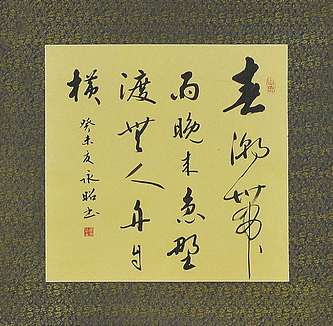 春潮帶
雨晚來急野
渡無人舟自
橫
癸未夏永昭書